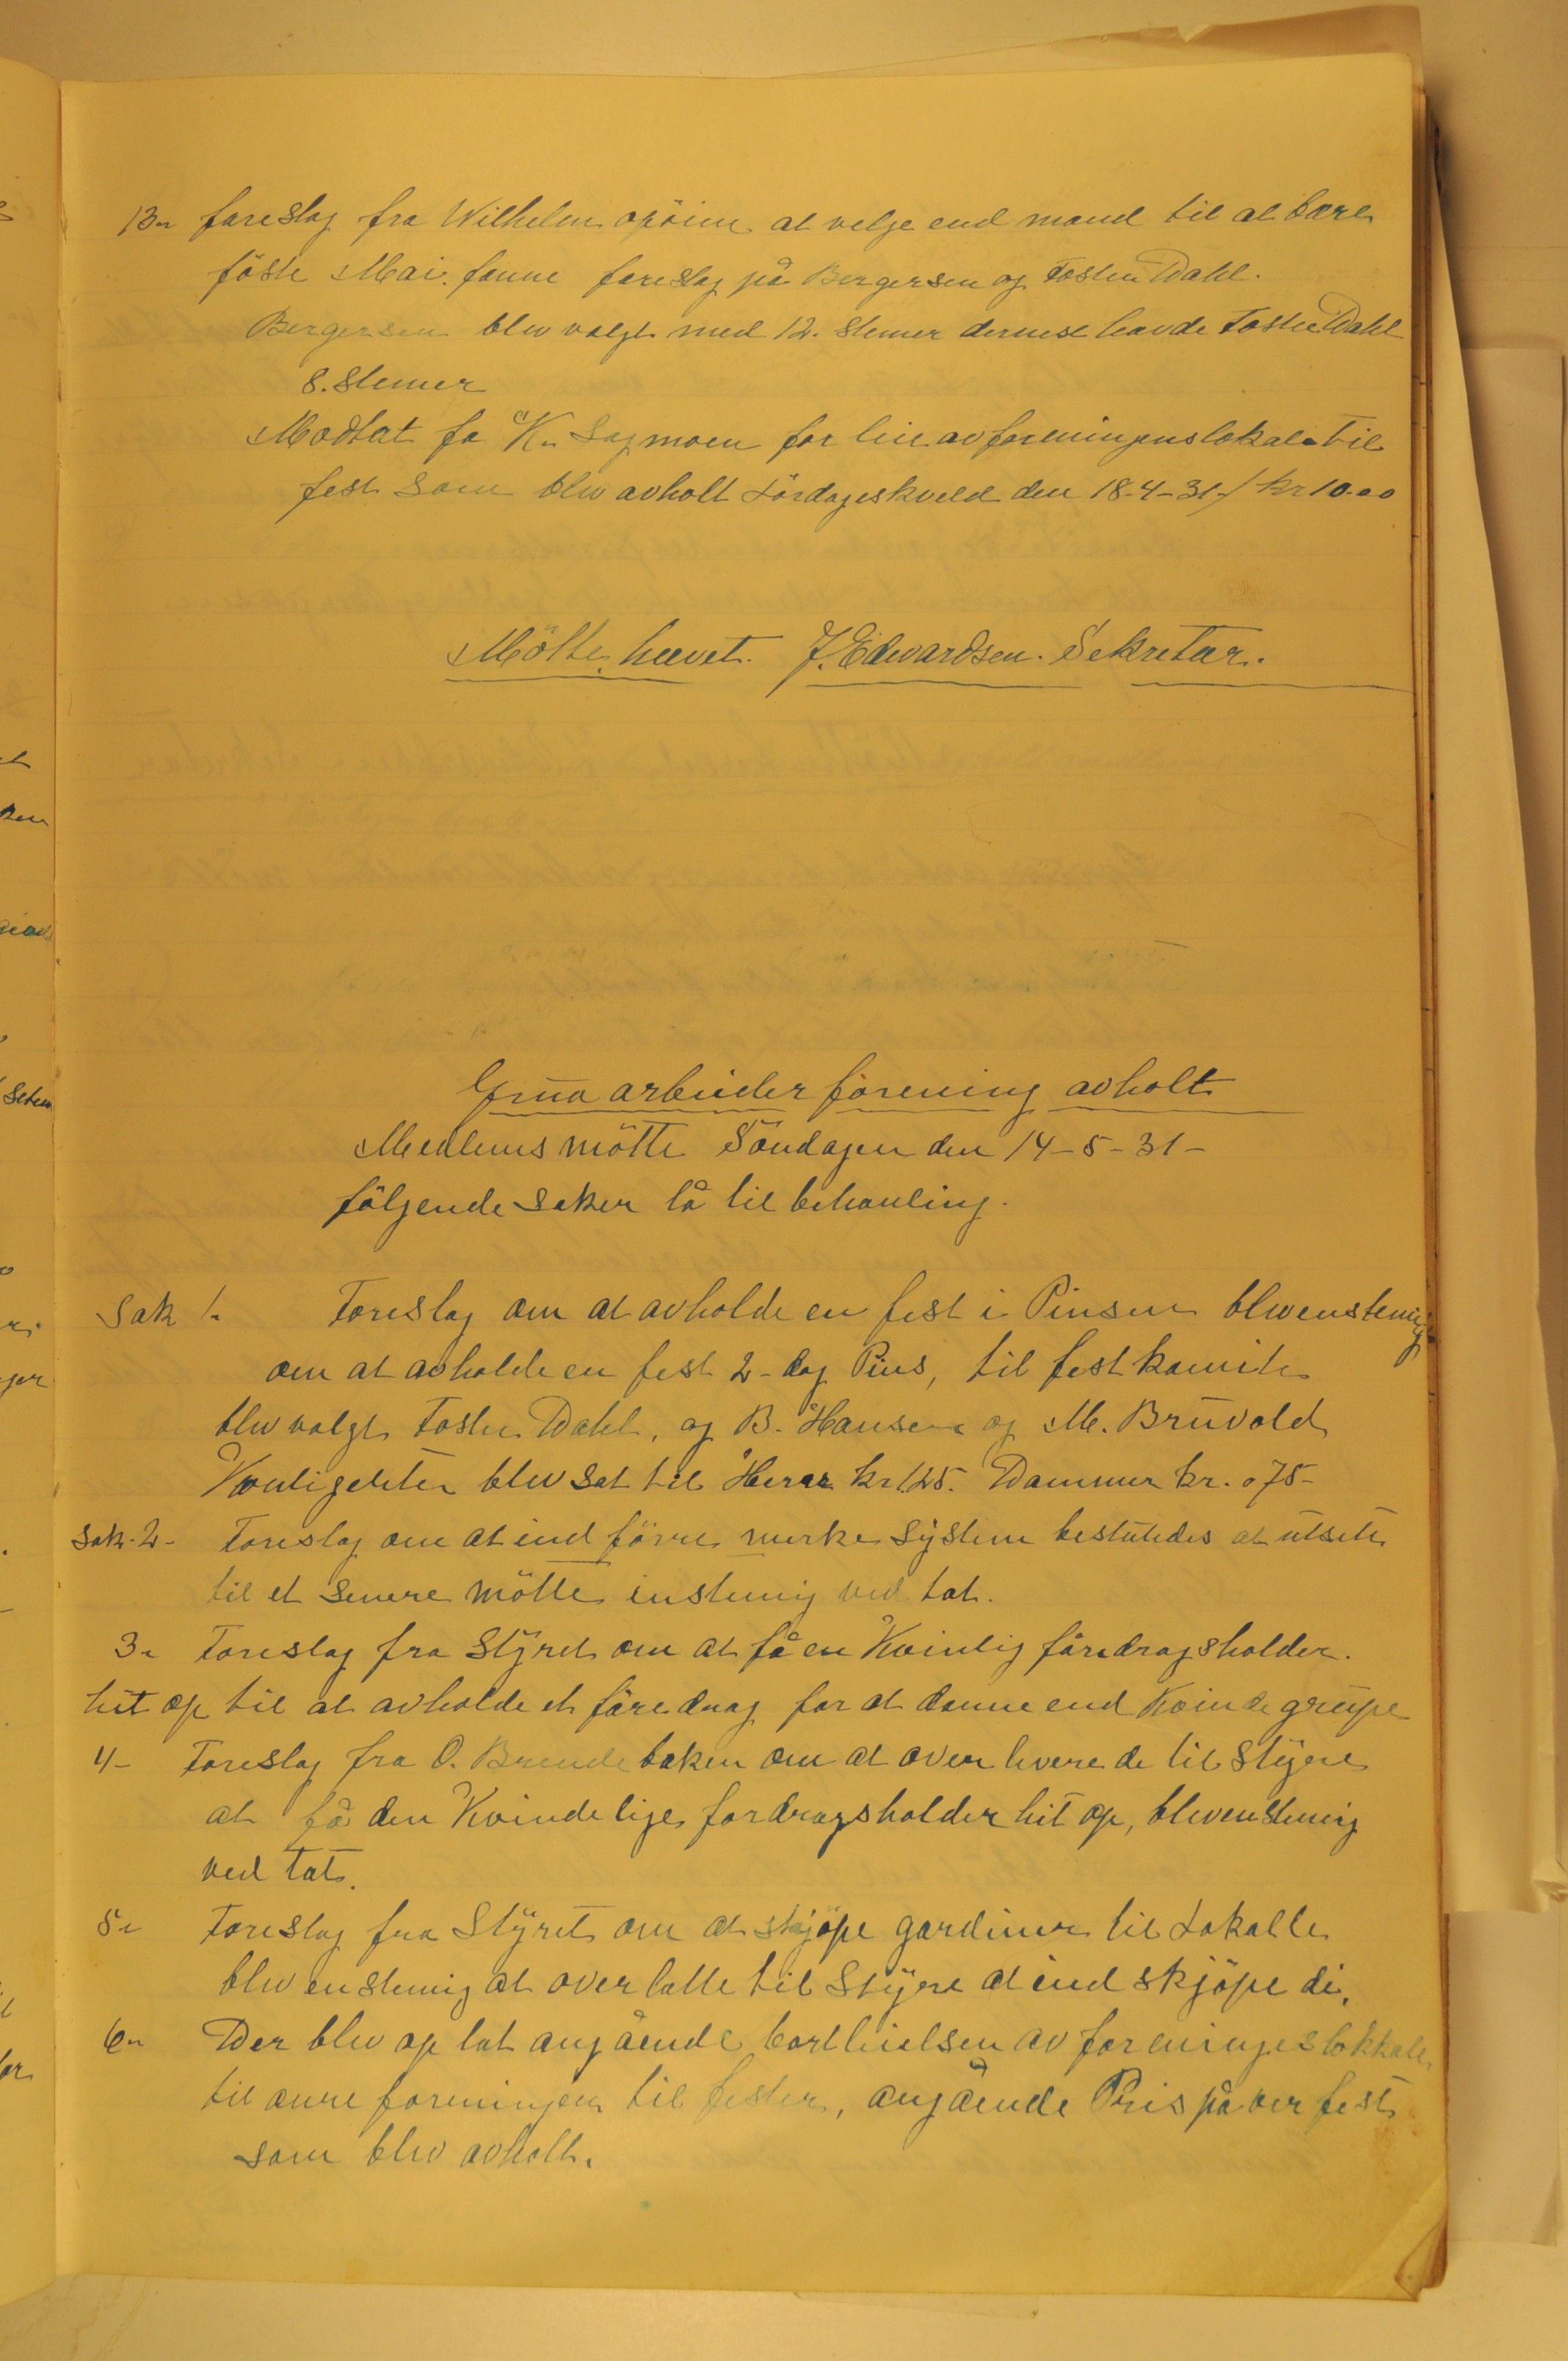 13- foreslag fra Wilhelm opöien at velge end mand til at bære
föste Mai. fanne foreslag på Bergersen og Tosten Dahl.
Bergersen blev valgt med 12. Stemer dernest havde Tosten Dahl
8. Stemer
Modtat fa K. Sagmoen for leie av foreningens lokale til
fest som blev avholt Lördageskveld den 18-4-31-/ kr 10.00
Mötte hævet. J. Edwardsen. Sekretær.
Grua arbeider förening avholt
Medlems mötte Söndagen den 14-5-31-
fölgende saker lå til behanling.
Sak 1. Foreslag om at avholde en fest i Pinsen blev enstemig
om at avholde en fest 2-dag Pins, til fest komite
blev valgt Tosten Dahl, og B. Hansen og M. Bruvold
Kontigeten blev sat til Herer kr 1.25. Dammer kr. 0 75-
Sak. 2- Foreslag om at ind förre merke system beslutedes at utsete
til et senere mötte enstemig ved tat.
3- Foreslag fra Styret om at få en Kvinlig föredragsholder.
hit op til at avholde et föredrag for at danne end Kvinde grupe
4- Foreslag fra O. Brendebakken om at over levere de til Styre
at få den Kvindelige fordragsholder hit op, blev enstemig
ved tat.
5- Foreslag fra Styret om at skjöpe gardiner til Lokalle
blev enstemig at over latte til Styre at ind skjöpe di.
6- Der blev op tat angående bortleielsen av foreninges lokkale
til anre foreningen til fester, angående Pris på ver fest
som blev avholt.